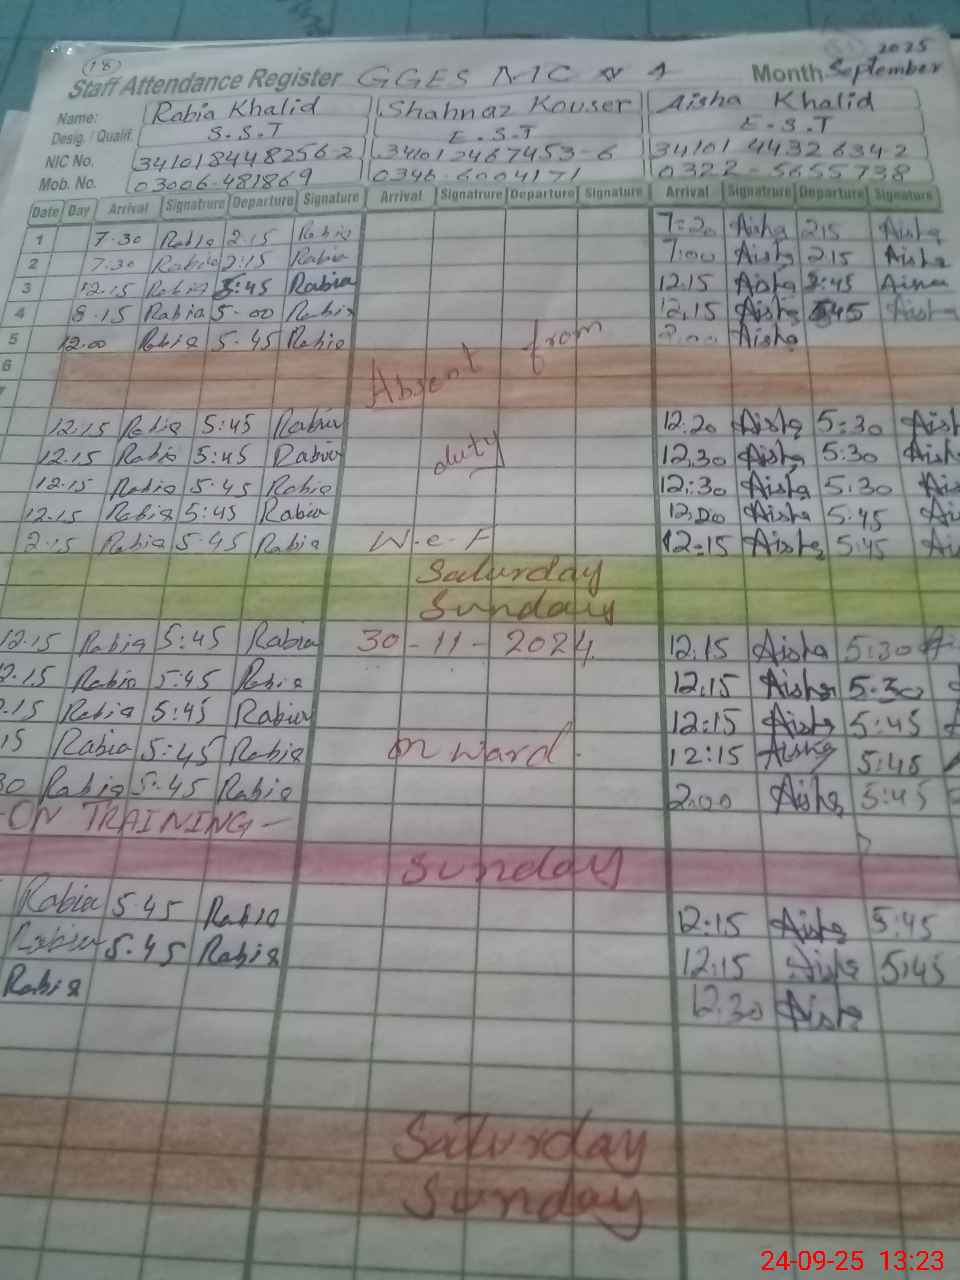 (18)
2025
Staff Attendance Register GGES MC N 1 Month September
Name: Rabia Khalid Shahnaz Kouser Aisha Khalid
Desig. / Qualif. S.S.T E.S.T E.S.T
NIC No. 341018448256-2 341012467453-6 341014432634-2
Mob. No. 03006-481869 0346-6004171 0322-5655738
Date Day Arrival Signatrure Departure Signature Arrival Signatrure Departure Signature Arrival Signatrure Departure Signature
1 7.30 Rabia 2.15 Rabia 7:20 Aisha 2:15 Aisha
2 7:30 Rabia 2:15 Rabia 7:00 Aisha 2:15 Aisha
3 12.15 Rabia 5:45 Rabia 12.15 Aisha 5:45 Aisha
4 8.15 Rabia 5.00 Rabia 12.15 Aisha 5:45 Aisha
5 12.00 Rabia 5.45 Rabia 2:00 Aisha
6 Absent from
7
12.15 Rabia 5:45 Rabia 12:20 Aisha 5:30 Aish
12.15 Rabia 5:45 Rabia duty 12.30 Aisha 5:30 Aish
12.15 Rabia 5.45 Rabia 12:30 Aisha 5:30 Ai
12.15 Rabia 5:45 Rabia Aisha 5.45 Ai
2.15 Rabia 5.45 Rabia W.e.F 12:15 Aisha 5:45 Ai
Saturday
Sunday
12.15 Rabia 5:45 Rabia 30-11-2024 12:15 Aisha 5:30 A
2.15 Rabia 5:45 Rabia 12:15 Aisha 5:30
2.15 Rabia 5:45 Rabia 12:15 Aisha 5:45
15 Rabia 5:45 Rabia on ward. 12:15 Aisha 5:45
30 Rabia 5.45 Rabia 2:00 Aisha 5:45
-ON TRAINING-
Sunday
Rabia 5.45 Rabia 12:15 Aisha 5:45
Rabia 5.45 Rabia 12:15 Aisha 5:45
Rabia 12.30 Aisha
Saturday
Sunday
24-09-25 13:23